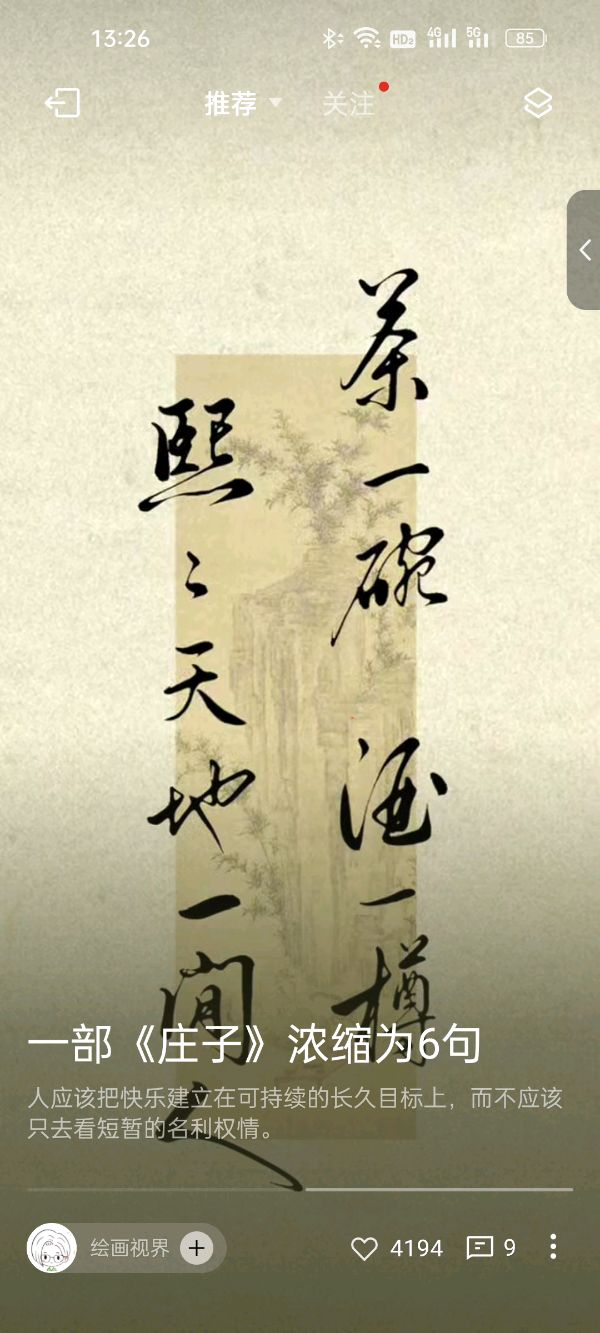 13:26
HD2 4G 5G 85
推荐 关注
茶一碗酒一樽
熙〻天地一闲人
一部《庄子》浓缩为6句
人应该把快乐建立在可持续的长久目标上，而不应该
只去看短暂的名利权情。
绘画视界 4194 9